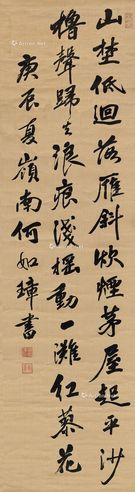 山埜低迴落雁斜炊煙茅屋起平沙
櫓聲歸去浪痕淺摇動一灘紅蓼花
庚辰夏嶺南何如璋書